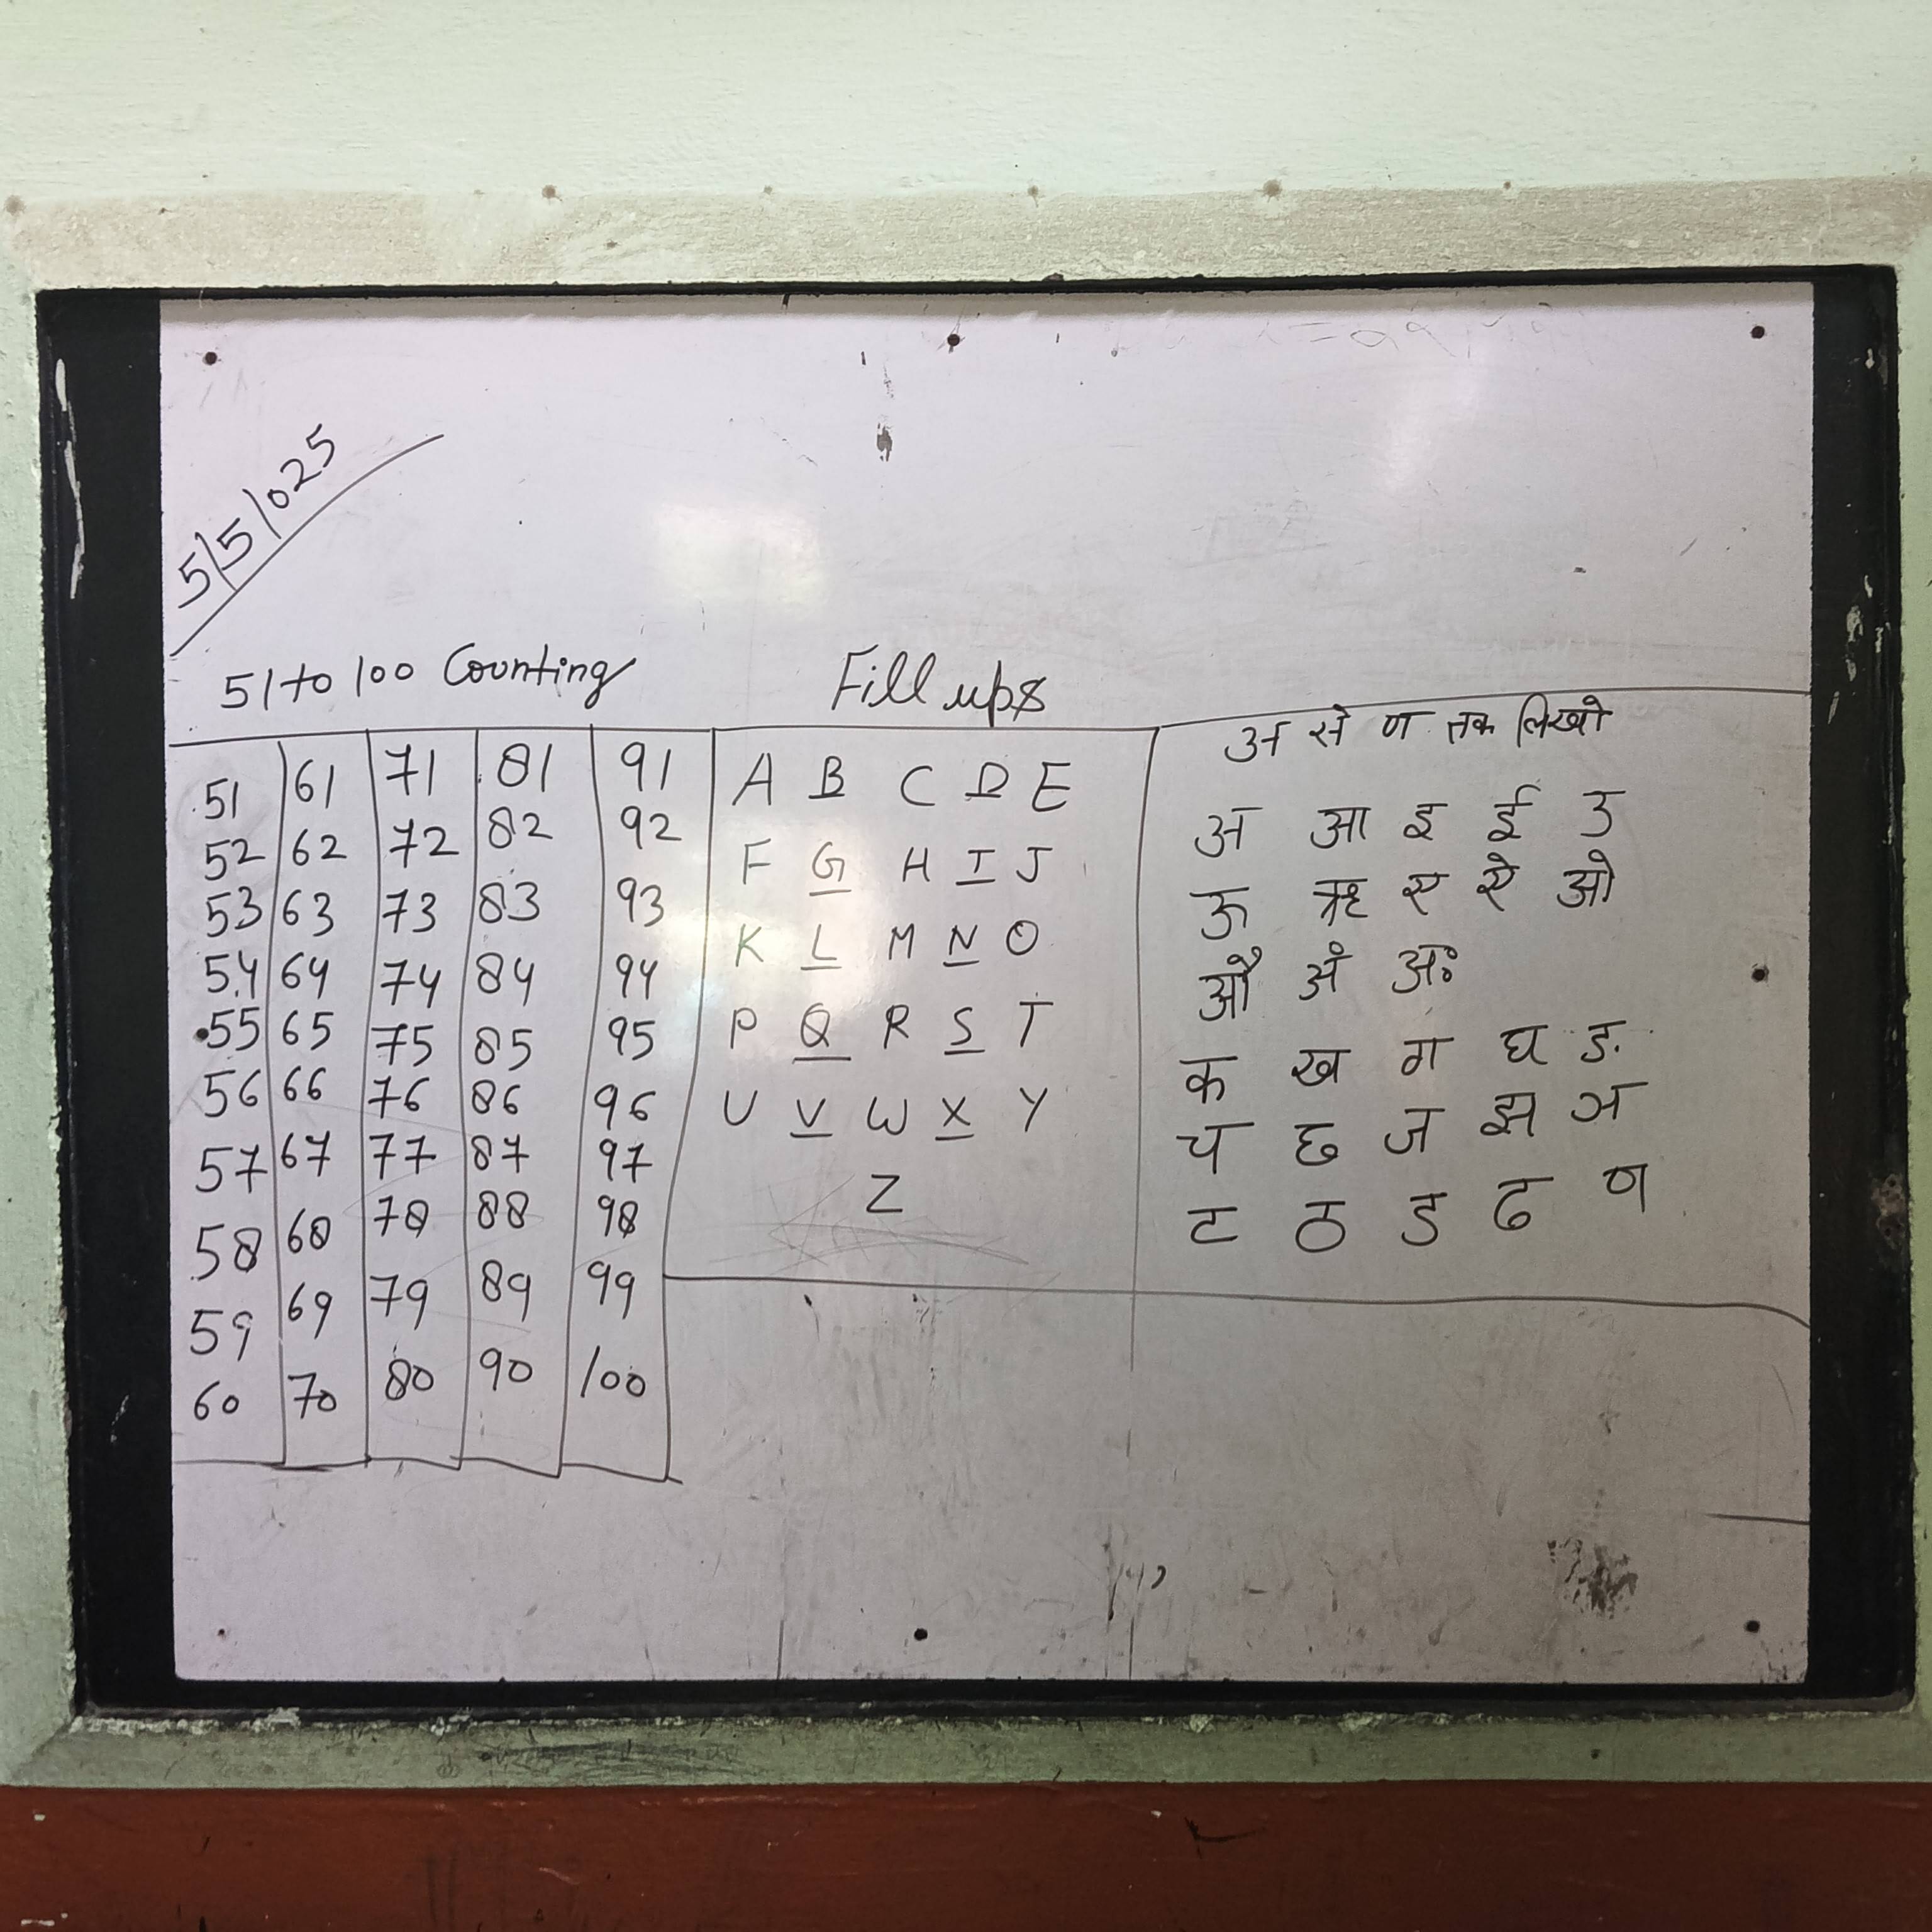 5/5/025
51 to 100 Counting
51 61 71 81 91
52 62 72 82 92
53 63 73 83 93
54 64 74 84 94
55 65 75 85 95
56 66 76 86 96
57 67 77 87 97
58 68 78 88 98
59 69 79 89 99
60 70 80 90 100
Fill ups
A B C D E
F G H I J
K L M N O
P Q R S T
U V W X Y
Z
अ से ण तक लिखो
अ आ इ ई उ
ऊ ऋ ए ऐ ओ
औ अं अः
क ख ग घ ङ
च छ ज झ ञ
ट ठ ड ढ ण